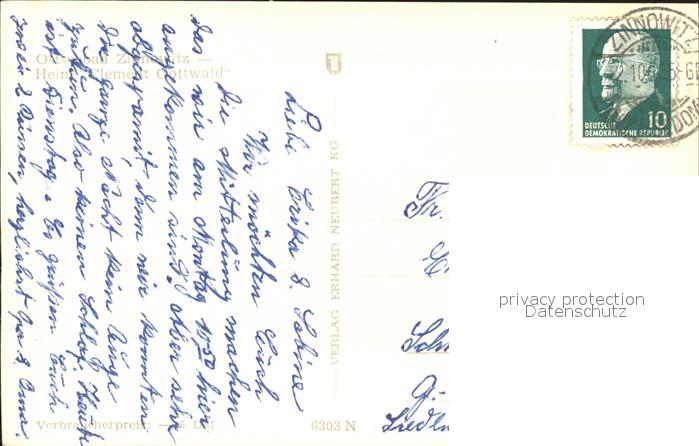 Ostseebad Zinnowitz —
Heim "Klement Gottwald"
Liebe Erika & Sabine
Wir möchten Euch
die Mitteilung machen
das wir am Montag 15 50 hier
ankommen sind, aber sehr
abgespannt, denn wir konnten
die ganze Nacht kein Auge
zutun. Also keinen Schlaf. Heute
ist Dienstag. Es grüßen Euch
herzlichst Opa & Oma.
Verbraucherpreis:
VERLAG ERHARD NEUBERT KG
6303 N
ZINNOWITZ
DEUTSCHE
DEMOKRATISCHE REPUBLIK
10
Fr.
privacy protection
Datenschutz